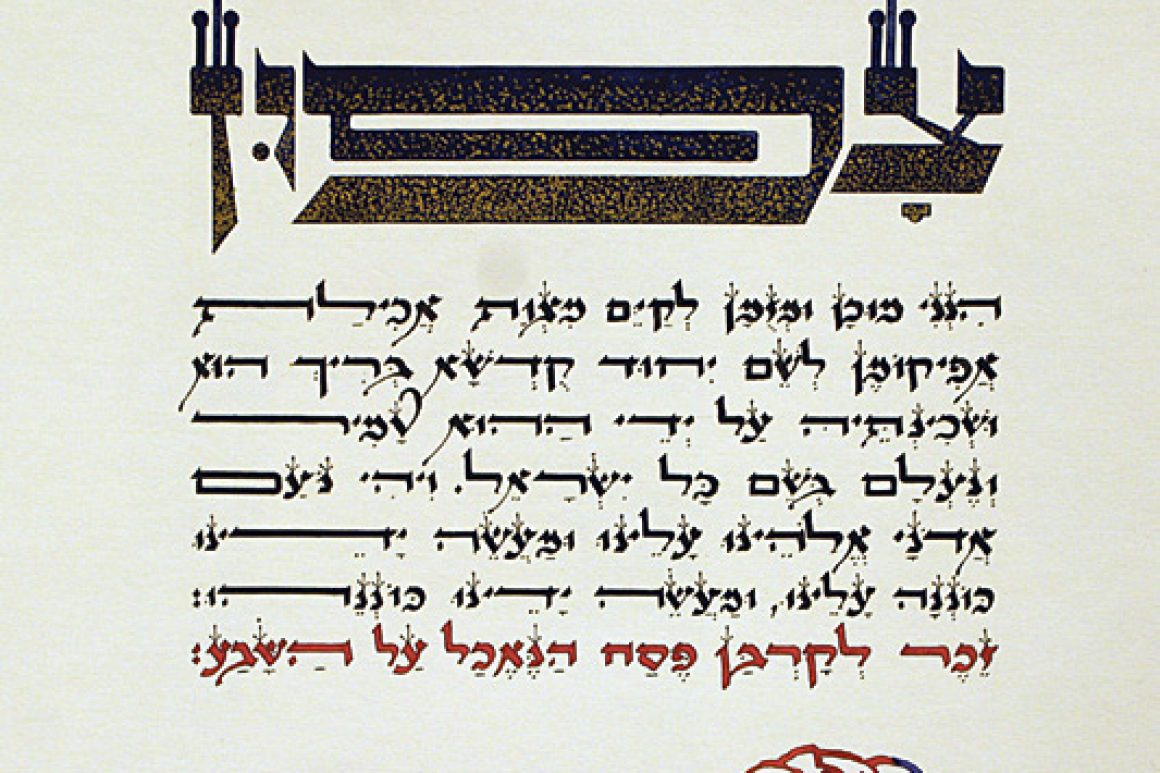 צָפוּן
הִנְנִי מוּכָן וּמְזֻמָּן לְקַיֵּם מִצְוַת אֲכִילַת
אֲפִיקוֹמֶן לְשֵׁם יִחוּד קֻדְשָׁא בְּרִיךְ הוּא
וּשְׁכִינְתֵּיהּ עַל יְדֵי הַהוּא טָמִיר
וְנֶעְלָם בְּשֵׁם כָּל יִשְׂרָאֵל. וִיהִי נֹעַם
אֲדֹנָי אֱלֹהֵינוּ עָלֵינוּ וּמַעֲשֵׂה יָדֵינוּ
כּוֹנְנָה עָלֵינוּ, וּמַעֲשֵׂה יָדֵינוּ כּוֹנְנֵהוּ:
זֵכֶר לְקָרְבַּן פֶּסַח הַנֶּאֱכַל עַל הַשָּׂבַע: